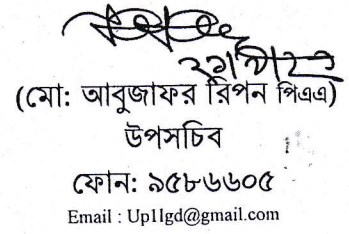 (মো: আবুজাফর রিপন পিএএ)
উপসচিব
ফোন: ৯৫৮৬৬০৫
Email : Up1lgd@gmail.com